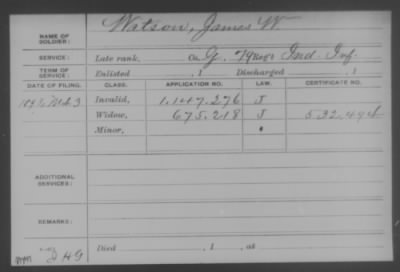 NAME OF SOLDIER: Watson, James W.
SERVICE: Late rank, Co. G, 79 Reg't Ind. Inf.
TERM OF SERVICE: Enlisted , 1 Discharged , 1
DATE OF FILING. CLASS. APPLICATION NO. LAW. CERTIFICATE NO.
Invalid, 1.117.276 J
Widow, 675.218 J 532.494
Minor,
ADDITIONAL SERVICES:
REMARKS:
Died , 1 , at